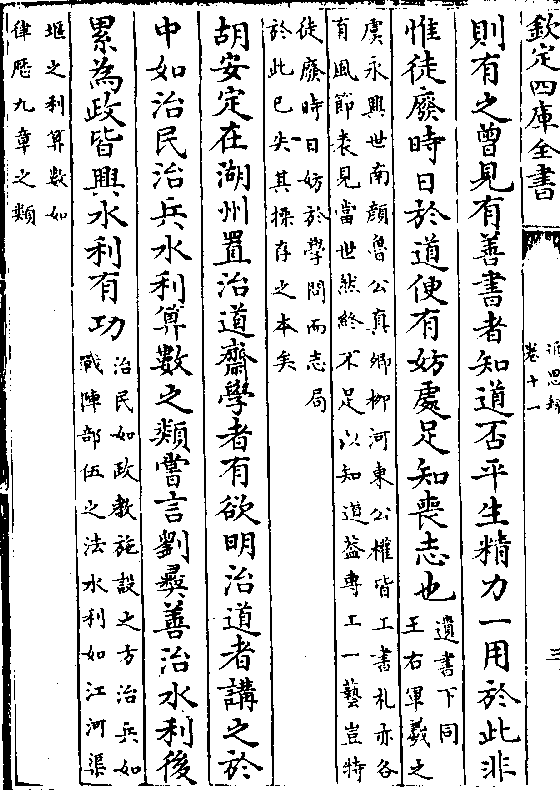 欽定四庫全書
近思録
卷十一
三
則有之曾見有善書者知道否平生精力一用於此非
惟徒廢時日於道便有妨處足知喪志也
遺書下同
王右軍羲之
虞永興世南顔魯公真卿柳河東公權皆工書札亦各
有風節表見當世然終不足以知道蓋專工一藝豈特
徒廢時日妨於學問而志局
於此已失其操存之本矣
胡安定在湖州置治道齋學者有欲明治道者講之於
中如治民治兵水利算數之類嘗言劉彛善治水利後
累為政皆興水利有功
治民如政教施設之方治兵如
戰陣部伍之法水利如江河渠
堰之利算數如
律歴九章之類